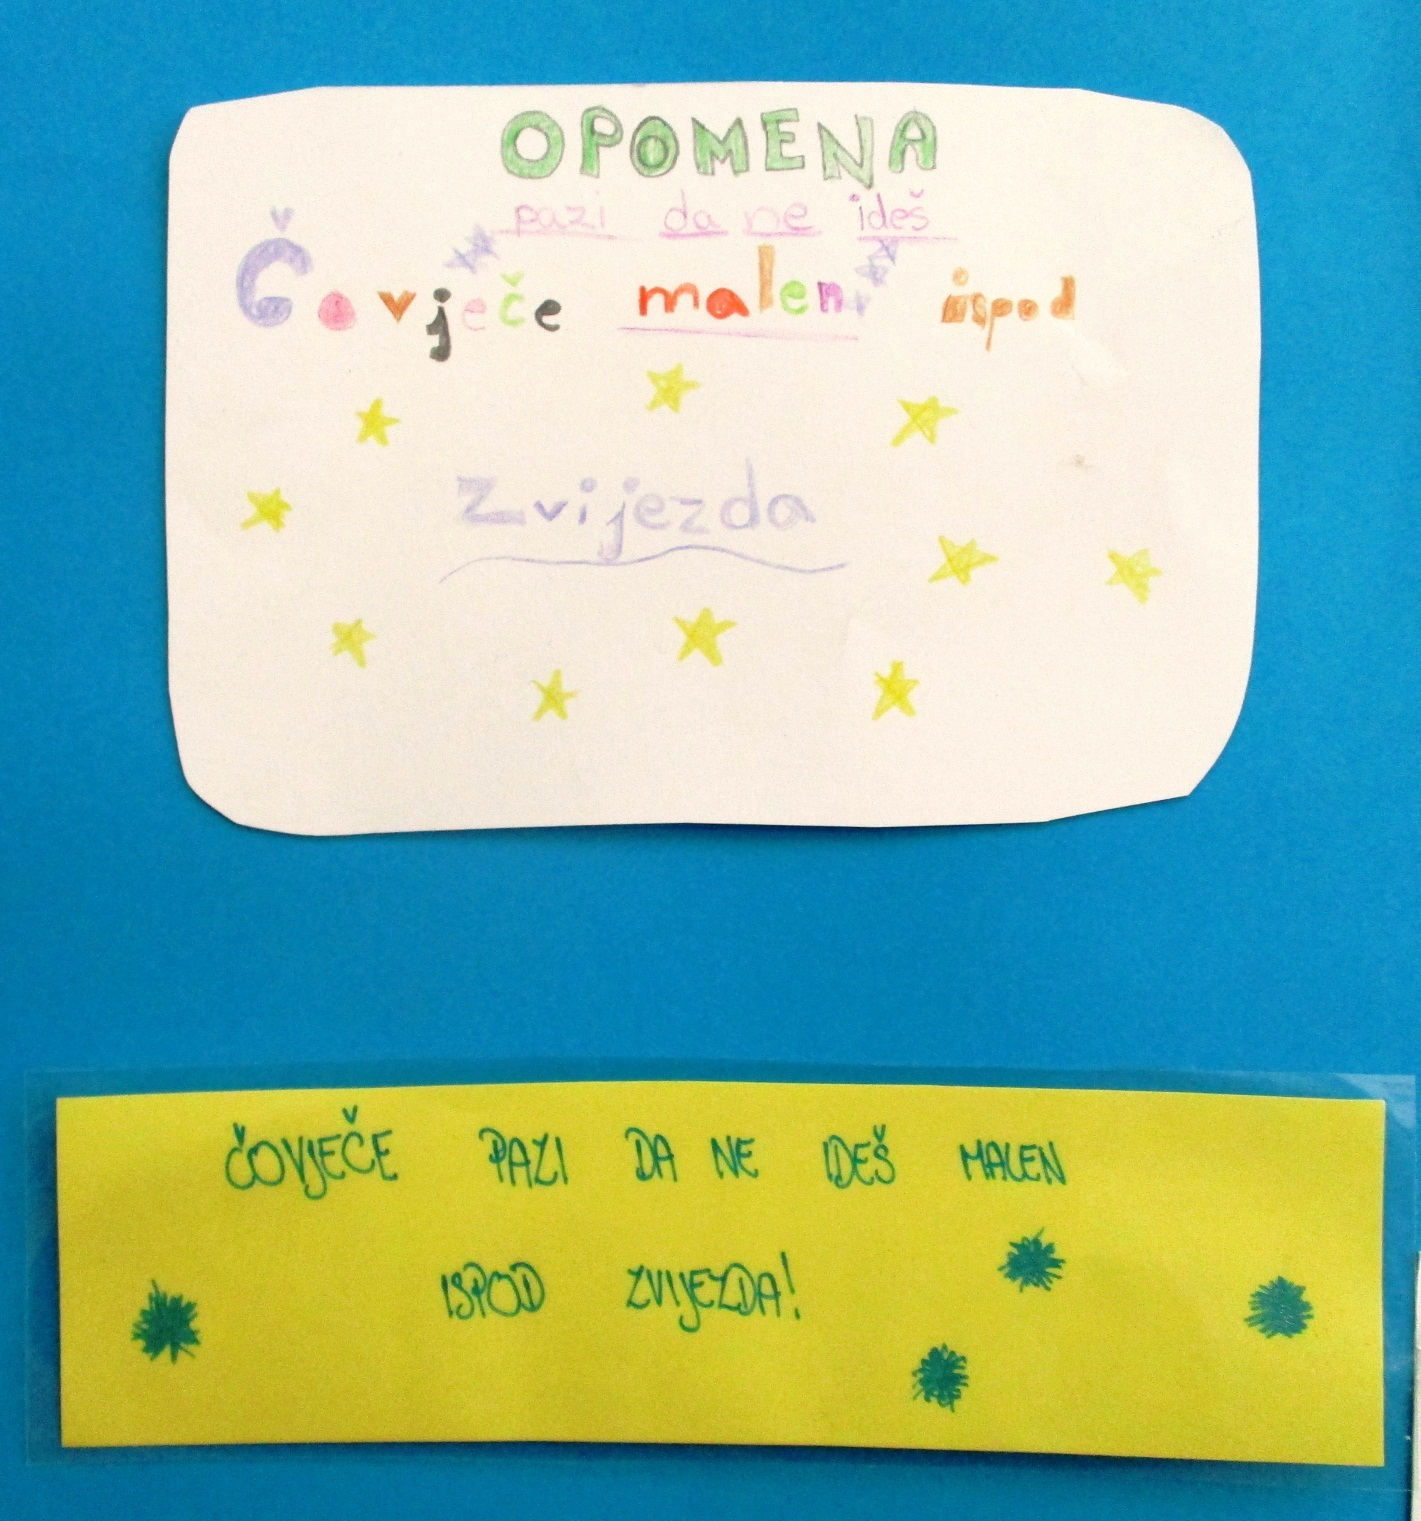 OPOMENA
pazi da ne ideš
Čovječe malen ispod
Zvijezda
ČOVJEČE PAZI DA NE IDEŠ MALEN
ISPOD ZVIJEZDA!